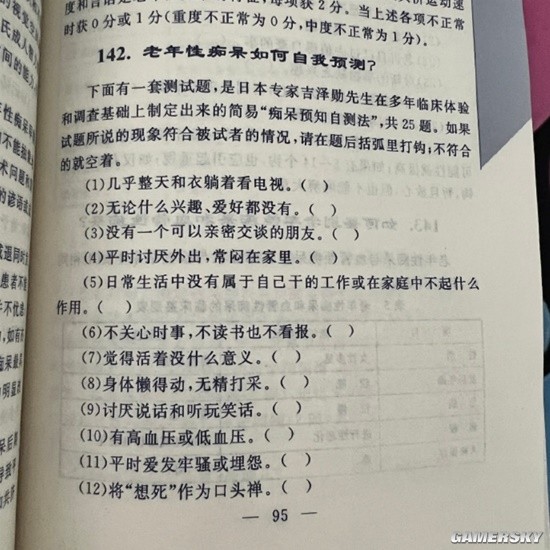 度和言语
每项获2分。当上述各项不正常
时获0分或1分(重度不正常为0分,中度不正常为1分)。
142. 老年性痴呆如何自我预测?
下面有一套测试题,是日本专家吉泽勋先生在多年临床体验
和调查基础上制定出来的简易“痴呆预知自测法”,共25题。如果
试题所说的现象符合被试者的情况,请在题后括弧里打钩;不符合
的就空着。
(1)几乎整天和衣躺着看电视。( )
(2)无论什么兴趣、爱好都没有。( )
(3)没有一个可以亲密交谈的朋友。( )
(4)平时讨厌外出,常闷在家里。( )
(5)日常生活中没有属于自己干的工作或在家庭中不起什么
作用。( )
(6)不关心时事,不读书也不看报。( )
(7)觉得活着没什么意义。( )
(8)身体懒得动,无精打采。( )
(9)讨厌说话和听玩笑话。( )
(10)有高血压或低血压。( )
(11)平时爱发牢骚或埋怨。( )
(12)将“想死”作为口头禅。( )
— 95 —
GAMERSKY